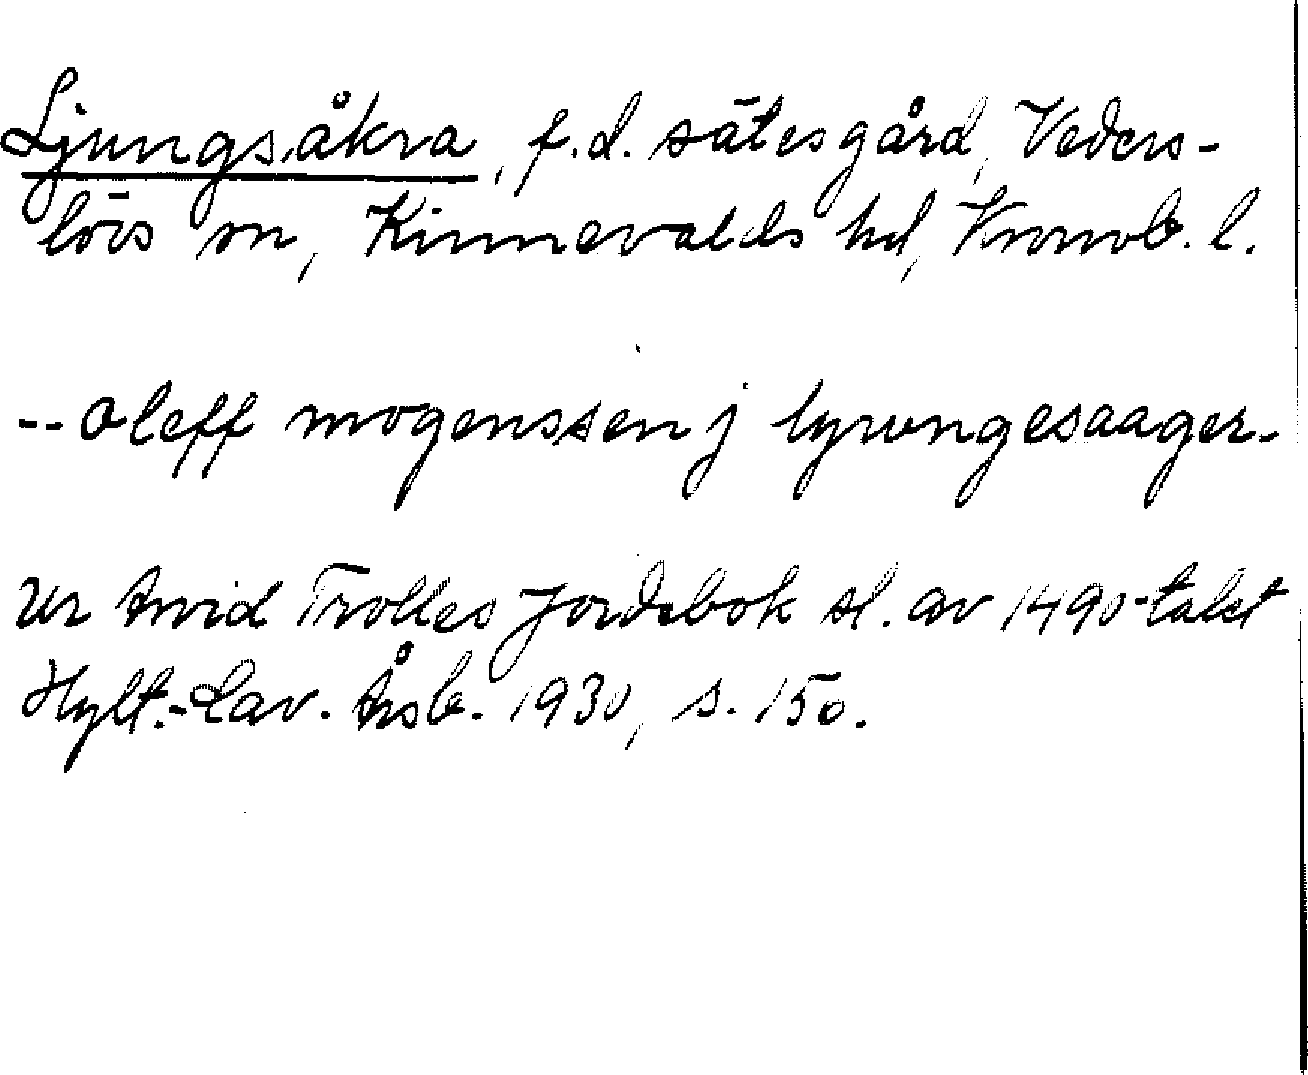 Ljungsåkra, f.d. sätesgård, Veders-
lövs sn, Kinnevalds hd, Kronob. l.
-- oleff mogenssen j lywngesaager-
Ur Arvid Trolles Jordebok sl. av 1490-talet
Hylt.-Cav. Årsb. 1930, s. 150.